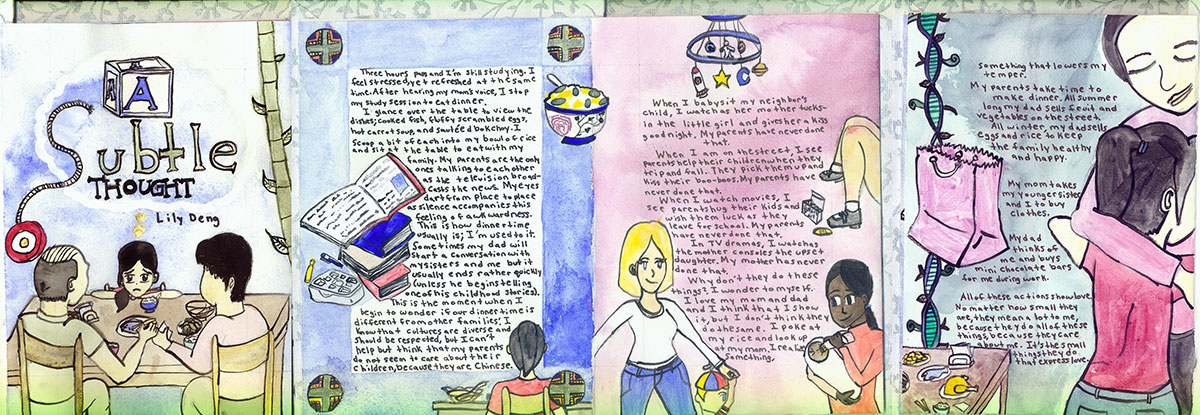 A
Subtle
THOUGHT
Lily Deng
Three hours pass and I'm still studying. I
feel stressed, yet refreshed at the same
time. After hearing my mom's voice, I stop
my study session to eat dinner.
I glance over the table to view the
dishes; cooked fish, fluffy scrambled eggs,
hot carrot soup, and sautéed bokchoy. I
scoop a bit of each into my bowl of rice
and sit at the table to eat with my
family. My parents are the only
ones talking to each other
as the television broad-
casts the news. My eyes
dart from place to place
as silence accompanies this
feeling of awkwardness.
This is how dinnertime
usually is; I'm used to it.
Sometimes my dad will
start a conversation with
my sisters and me but it
usually ends rather quickly
(unless he begins telling
one of his childhood stories).
This is the moment when I
begin to wonder if our dinner time is
different from other families'. I
know that cultures are diverse and
should be respected, but I can't
help but think that my parents
do not seem to care about their
children, because they are Chinese.
When I babysit my neighbor's
child, I watch as her mother tucks-
in the little girl and gives her a kiss
goodnight. My parents have never done
that.
When I am on the street, I see
parents help their children when they
trip and fall. They pick them up and
kiss their boo-boos. My parents have
never done that.
When I watch movies, I
see parents hug their kids and
wish them luck as they
leave for school. My parents
have never done that.
In TV dramas, I watch as
the mother consoles the upset
daughter. My mother has never
done that.
Why don't they do these
things?, I wonder to myself.
I love my mom and dad
and I think that I show
it, but I don't think they
do the same. I poke at
my rice and look up
at my mom. I realize
something,
something that lowers my
temper.
My parents take time to
make dinner. All summer
long my dad sells fruit and
vegetables on the street.
All winter, my dad sells
eggs and rice to keep
the family healthy
and happy.
My mom takes
my younger sister
and I to buy
clothes.
My dad
thinks of
me and buys
mini chocolate bars
for me during work.
All of these actions show love.
No matter how small they
are, they mean a lot to me,
because they do all of these
things, because they care
about me. It's the small
things they do
that express love.